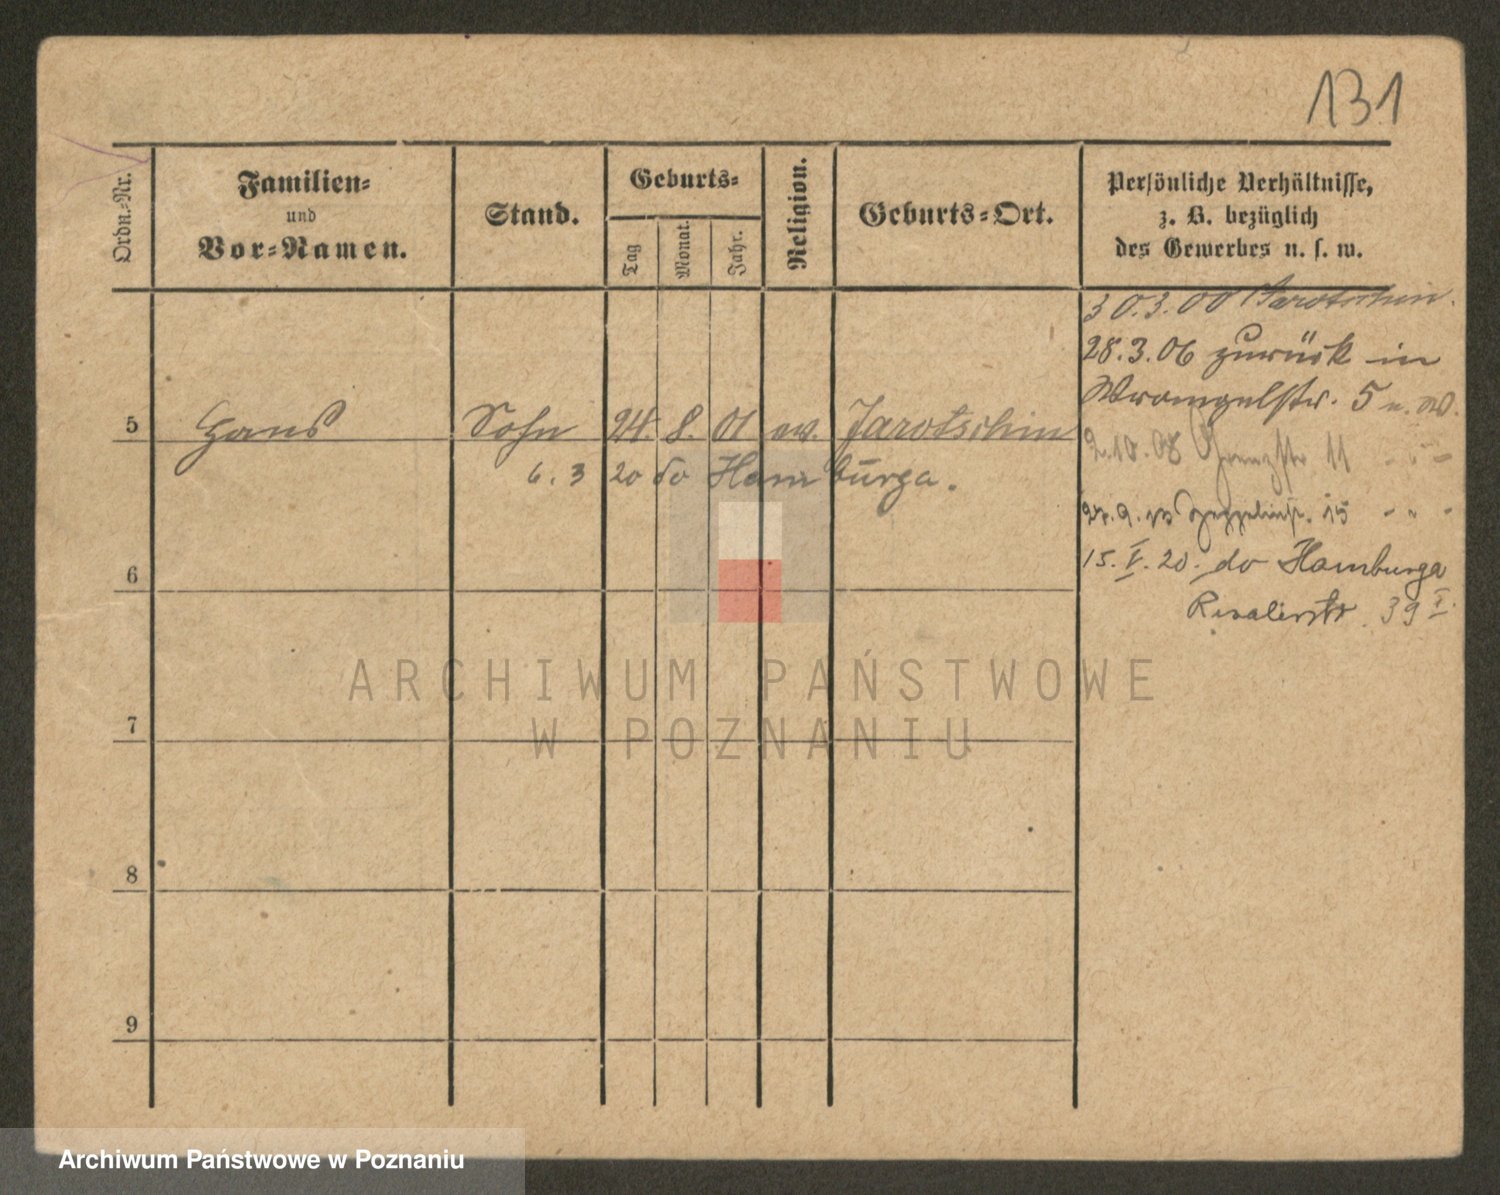 131
Ordn.-Nr.
Familien-
und
Vor-Namen.
Stand.
Geburts-
Tag
Monat.
Jahr.
Religion.
Geburts-Ort.
Persönliche Verhältnisse,
z. B. bezüglich
des Gewerbes u. s. w.
30.3.00 Jarotschin.
28.3.06 zurück in
Wrangelstr. 5 u. W.
5 Hans Sohn 24. 8. 01 ev. Jarotschin
2.10.08 Grenzstr 11 " " "
6. 3 20 do Hamburga.
15 " " "
15. V. 20. do Hamburga
39 I
6
ARCHIWUM PAŃSTWOWE
W POZNANIU
7
8
9
Archiwum Państwowe w Poznaniu